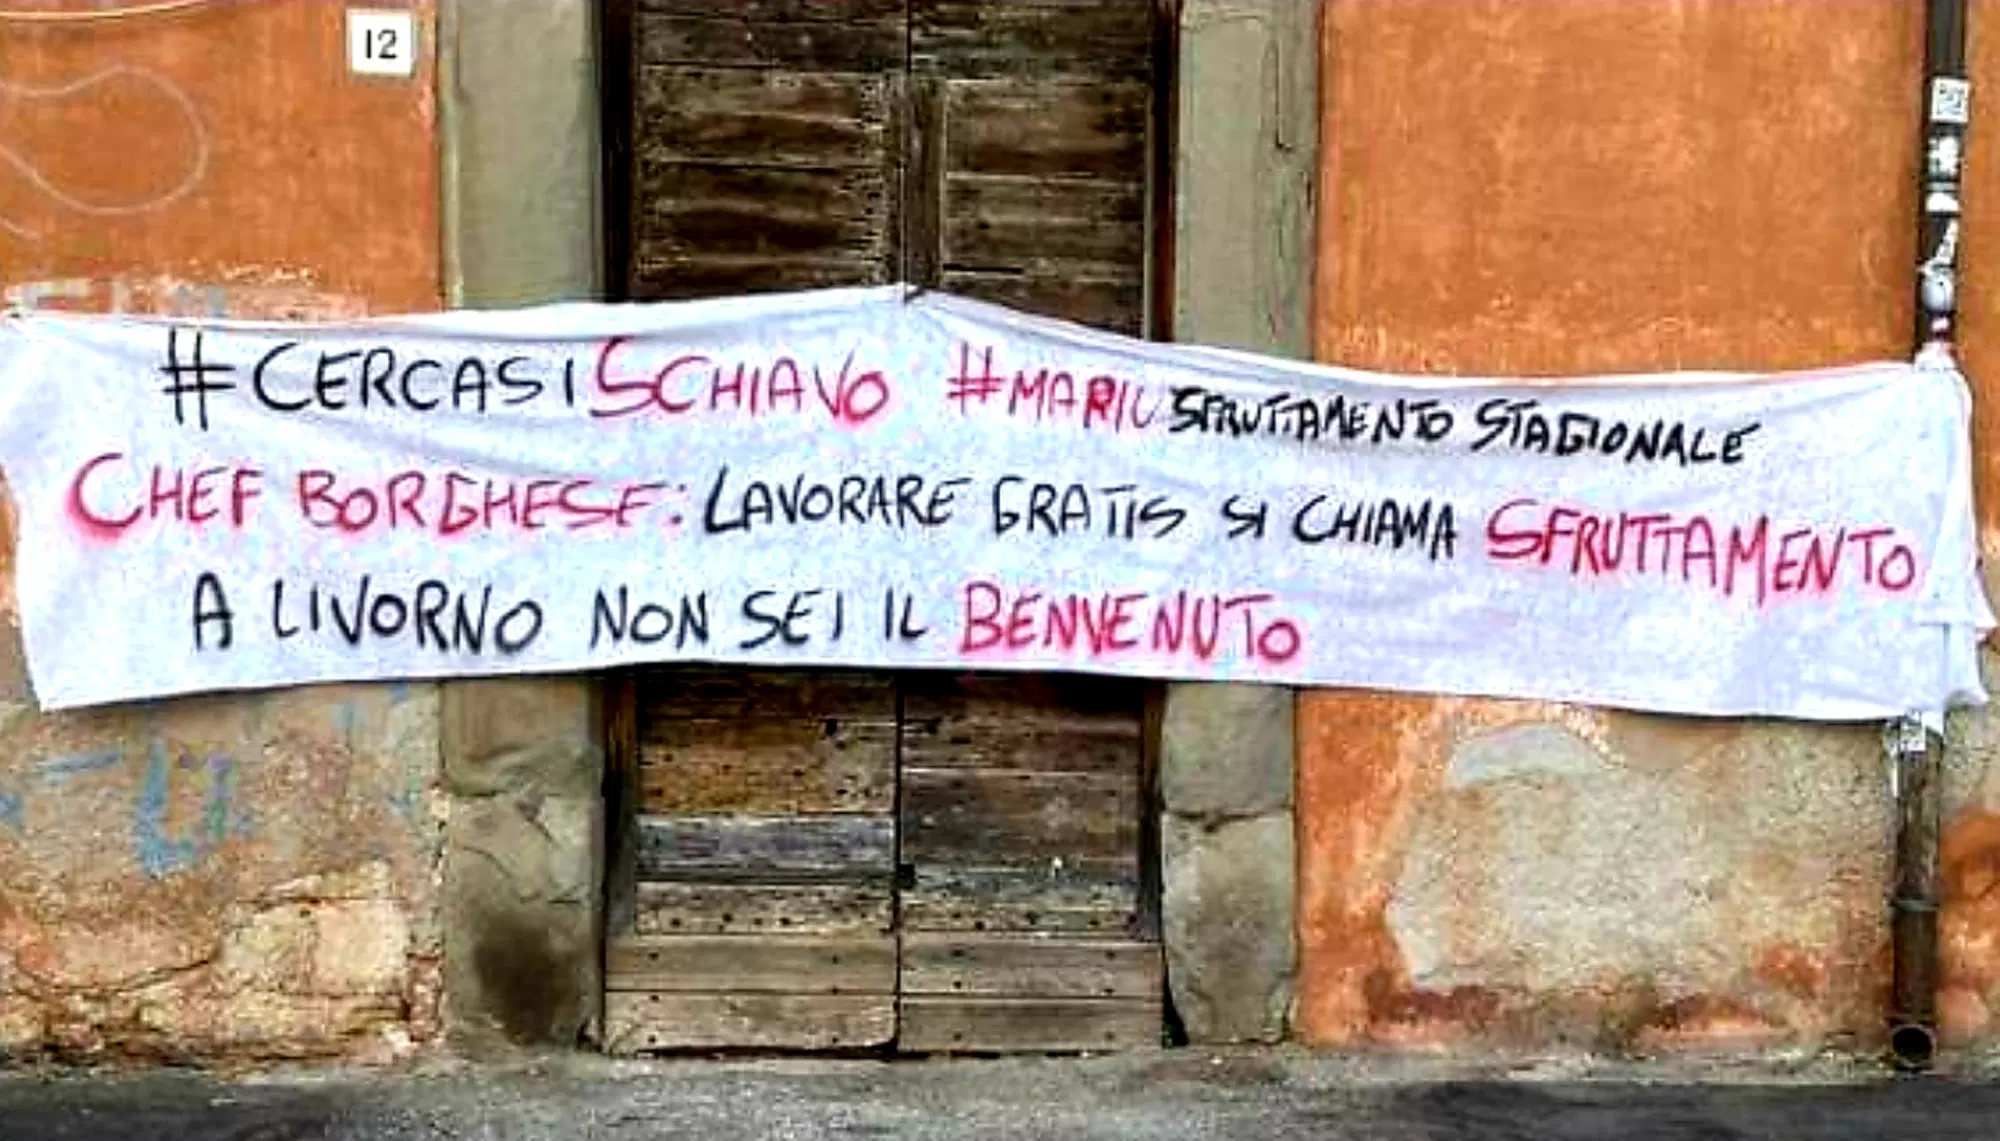 12
#CERCASISCHIAVO #MARIUSFRUTTAMENTO STAGIONALE
CHEF BORGHESE: LAVORARE GRATIS SI CHIAMA SFRUTTAMENTO
A LIVORNO NON SEI IL BENVENUTO